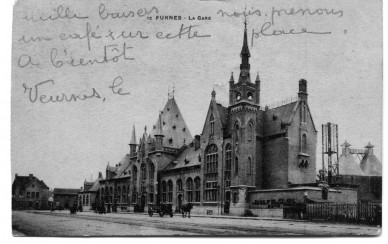 12 FURNES - LA GARE
vieille baisers nous prenons
un café sur cette place.
A bientôt
Veurnes, le